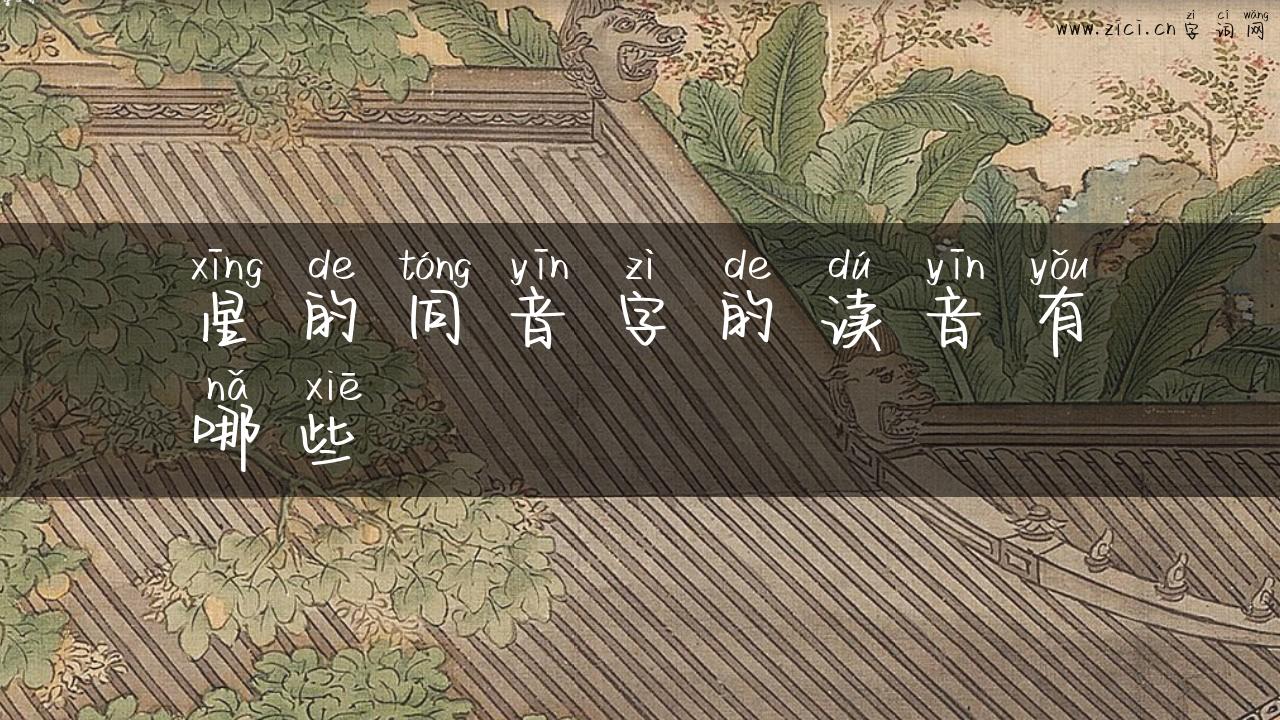 zì cí wǎng
www.zici.cn 字 词 网
xīng de tóng yīn zì de dú yīn yǒu
星 的 同 音 字 的 读 音 有
nǎ xiē
哪 些